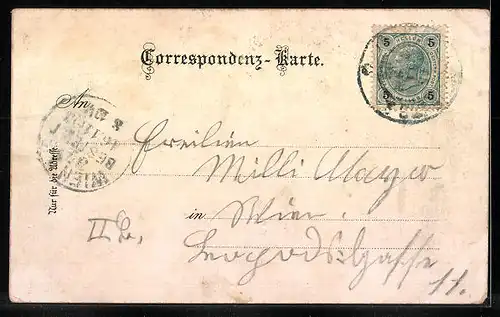 Correspondenz-Karte.
5 5
5 5
An
Freilein
Milli Mayer
in Wien.
II
Leopoldsgasse
11.
Nur für die Adresse.
WIEN